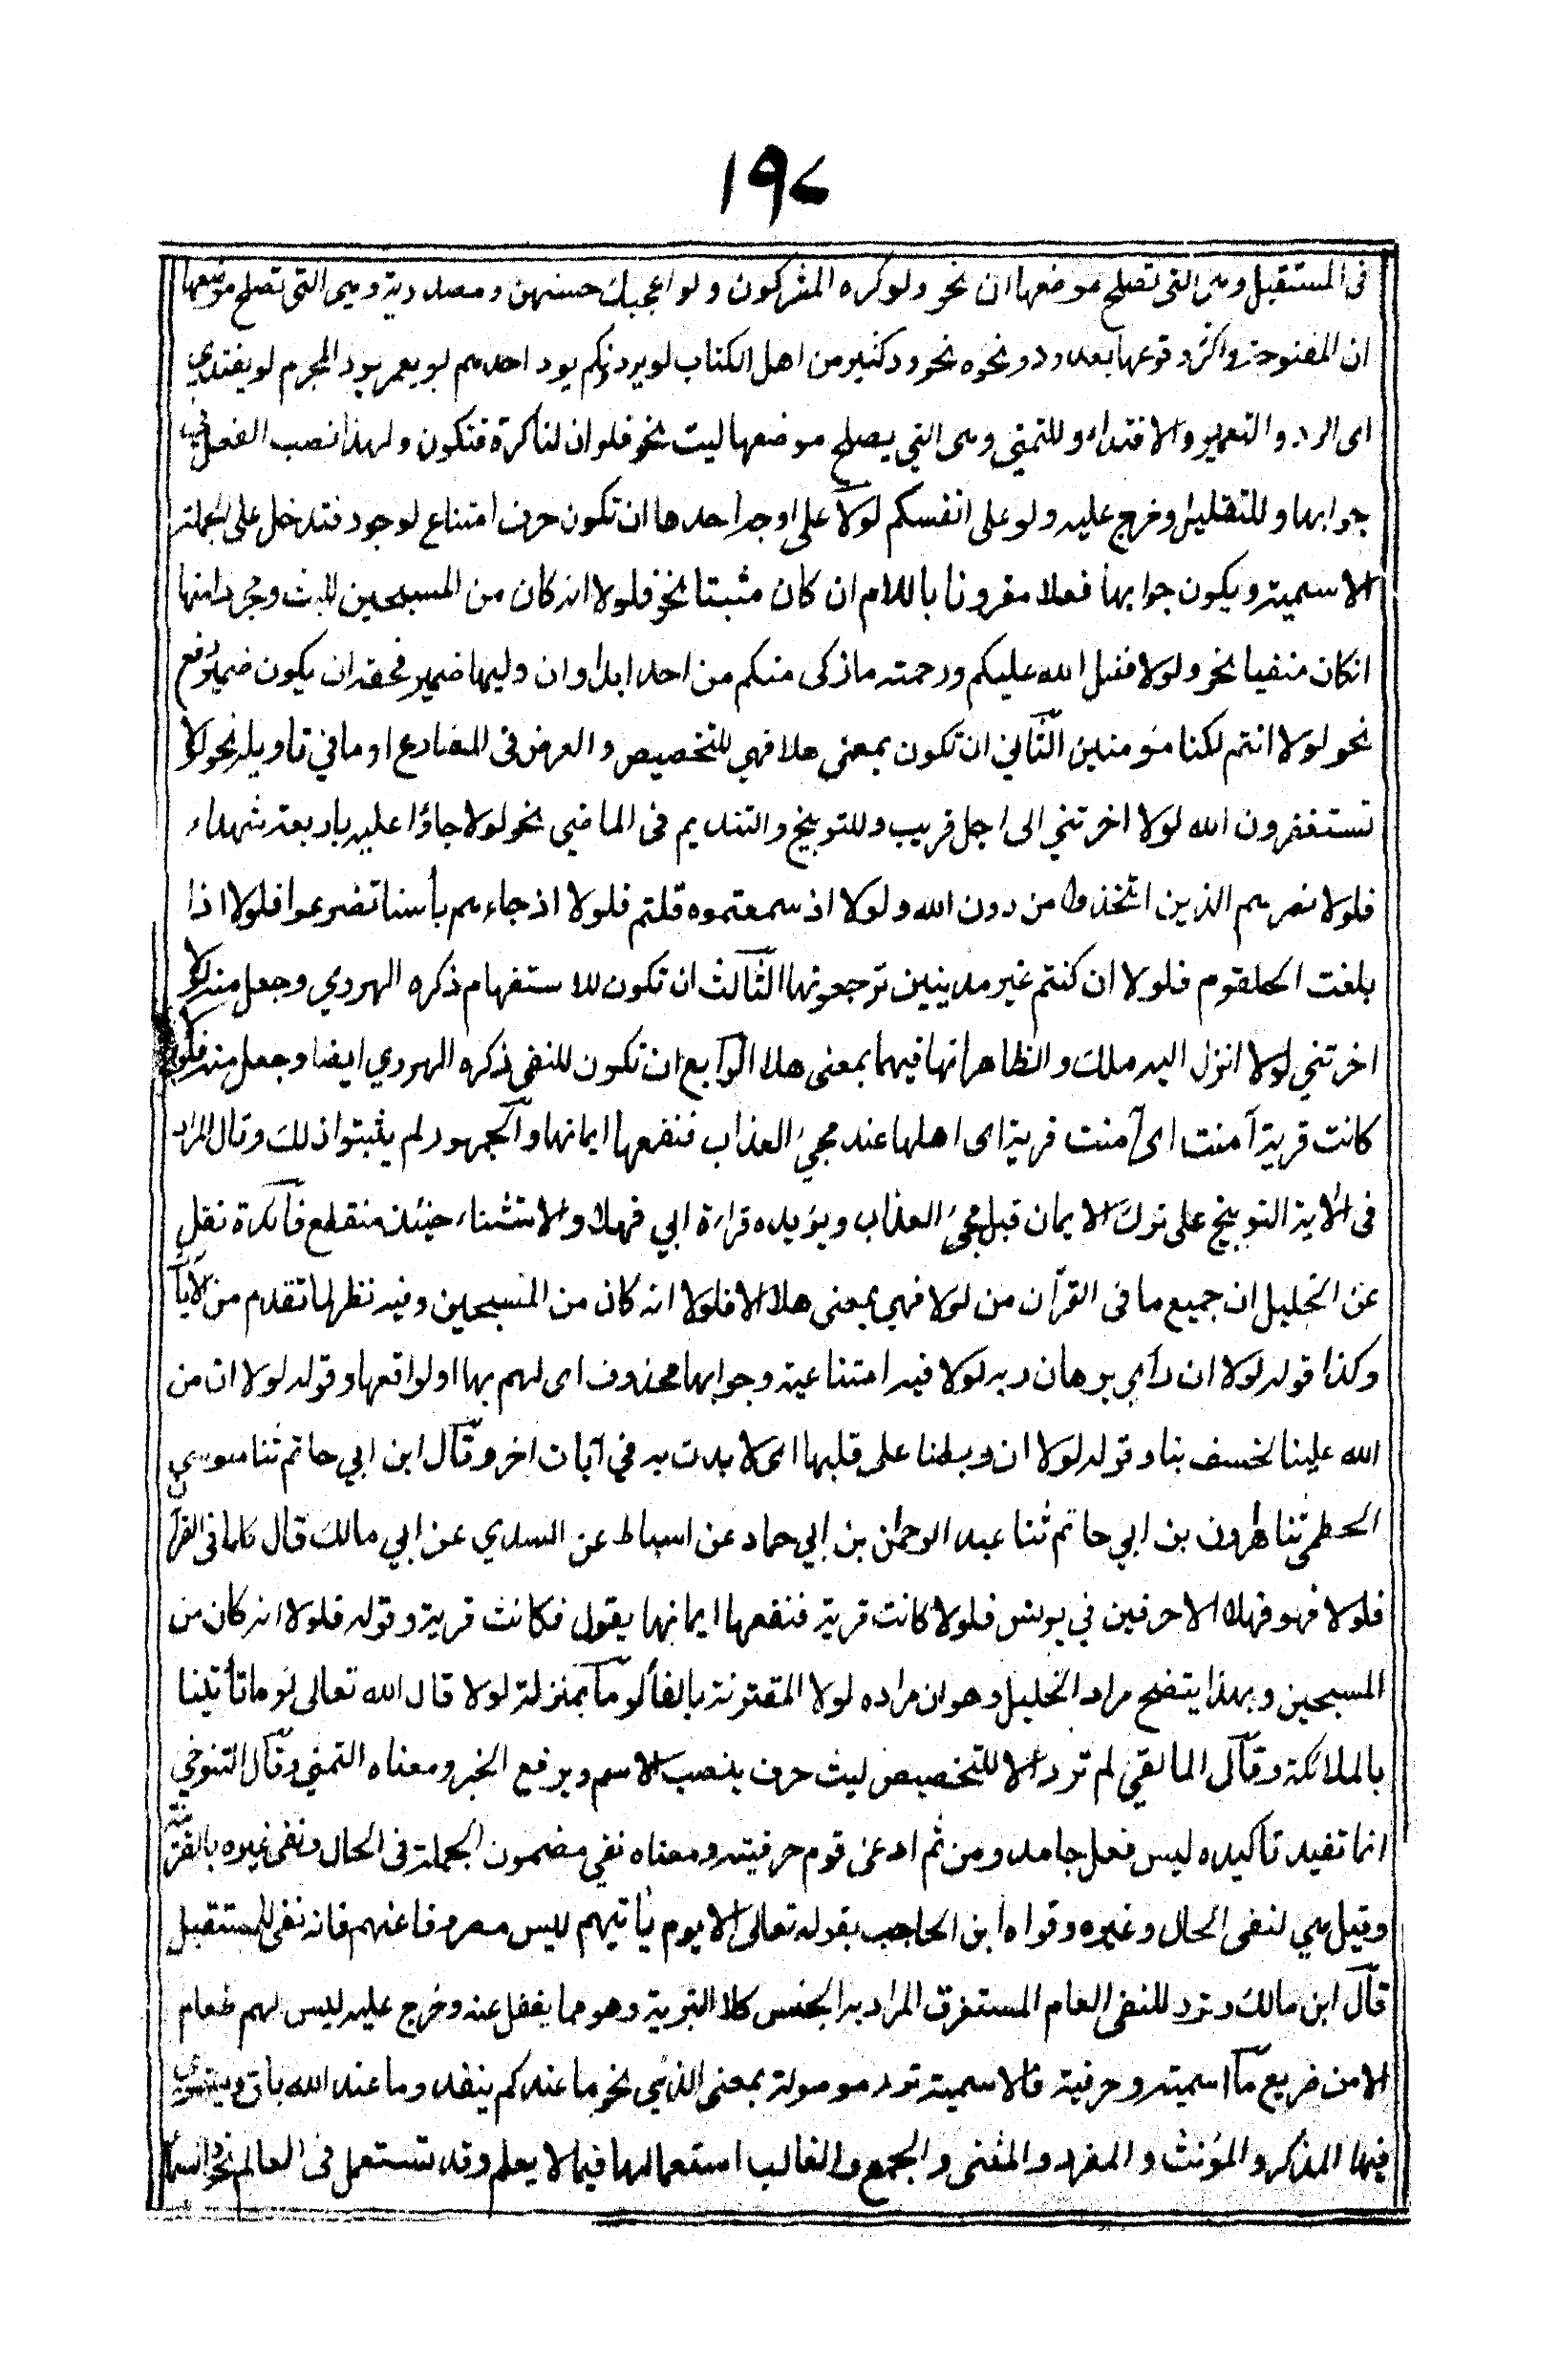 ١٩٧
فى المستقبل وهى التى تصلح موضعها ان نحو ولو كره المشركون ولو اعجبك حسنهن ومصدرية وهى التى تصلح موضعها
ان المفتوحة واكثر وقوعها بعد ود ونحوه نحو ود كثير من اهل الكتاب لو يردونكم يود احدهم لو يعمر يود المجرم لو يفتدي
اى الرد والتعمير والافتداء وللتمني وهى التي يصلح موضعها ليت نحو فلو ان لنا كرة فنكون ولهذا نصب الفعل في
جوابها وللتقليل وخرج عليه ولو على انفسكم لولا على اوجه احدها ان تكون حرف امتناع لوجود فتدخل على الجملة
الاسمية ويكون جوابها فعلا مقرونا باللام ان كان مثبتا نحو فلولا انه كان من المسبحين للبث ومجردا منها
انكان منفيا نحو ولولا فضل الله عليكم ورحمته ما زكى منكم من احد ابدا وان وليها ضمير فحقه ان يكون ضمير رفع
نحو لولا انتم لكنا مؤمنين الثاني ان تكون بمعنى هلا فهي للتخصيص والعرض فى المضارع او ما في تاويله نحو لولا
تستغفرون الله لولا اخرتني الى اجل قريب وللتوبيخ والتنديم فى الماضي نحو لولا جاؤا عليه باربعة شهداء
فلولا نصرهم الذين اتخذوا من دون الله ولولا اذ سمعتموه قلتم فلولا اذ جاءهم بأسنا تضرعوا فلولا اذا
بلغت الحلقوم فلولا ان كنتم غير مدينين ترجعونها الثالث ان تكون للاستفهام ذكره الهروي وجعل منه لولا
اخرتني لولا انزل اليه ملك والظاهر انها فيهما بمعنى هلا الرابع ان تكون للنفى ذكره الهروي ايضا وجعل منه فلولا
كانت قرية آمنت اى آمنت قرية اى اهلها عند مجئ العذاب فنفعها ايمانها والجمهور لم يثبتوا ذلك وقال المراد
فى الاية التوبيخ على ترك الايمان قبل مجئ العذاب ويؤيده قراءة ابي فهلا والاستثناء حينئذ منقطع فآئدة نقل
عن الخليل ان جميع ما فى القرآن من لولا فهي بمعنى هلا الا فلولا انه كان من المسبحين وفيه نظر لما تقدم من الآيآ
وكذا قوله لولا ان رأي برهان ربه لولا فيه امتناعية وجوابها محذوف اى لهم بها او لواقعها وقوله لولا ان من
الله علينا لخسف بنا وقوله لولا ان ربطنا على قلبها اى لابدت به في آيات اخر وقال ابن ابي حاتم ثنا موسى
الخطمى ثنا هرون بن ابي حاتم ثنا عبد الرحمٰن بن ابي حماد عن اسباط عن السدي عن ابي مالك قال كلما فى القرآن
فلولا فهو فهلا الا حرفين في يونس فلولا كانت قرية فنفعها ايمانها يقول فكانت قرية وقوله فلولا انه كان من
المسبحين وبهذا يتضح مراد الخليل وهو ان مراده لولا المقترنة بالفاء لوما بمنزلة لولا قال الله تعالى لوما تأتينا
بالملائكة وقال المالقي لم ترد الا للتخصيص ليت حرف ينصب الاسم ويرفع الخبر ومعناه التمني وقال التنوخي
انما تفيد تاكيده ليس فعل جامد ومن ثم ادعى قوم حرفيته ومعناه نفي مضمون الجملة فى الحال ونفى غيره بالقرينة
وقيل هي لنفى الحال وغيره وقواه ابن الحاجب بقوله تعالى الا يوم يأتيهم ليس مصروفا عنهم فانه نفى للمستقبل
قال ابن مالك وترد للنفى العام المستغرق المراد به الجنس كلا التبرية وهو مما يغفل عنه وخرج عليه ليس لهم طعام
الا من ضريع ما اسمية وحرفية فالاسمية ترد موصولة بمعنى الذي نحو ما عندكم ينفد وما عند الله باق ويستوي
فيها المذكر والمؤنث والمفرد والمثنى والجمع والغالب استعمالها فيما لا يعلم وقد تستعمل فى العالم نحو والسمآ